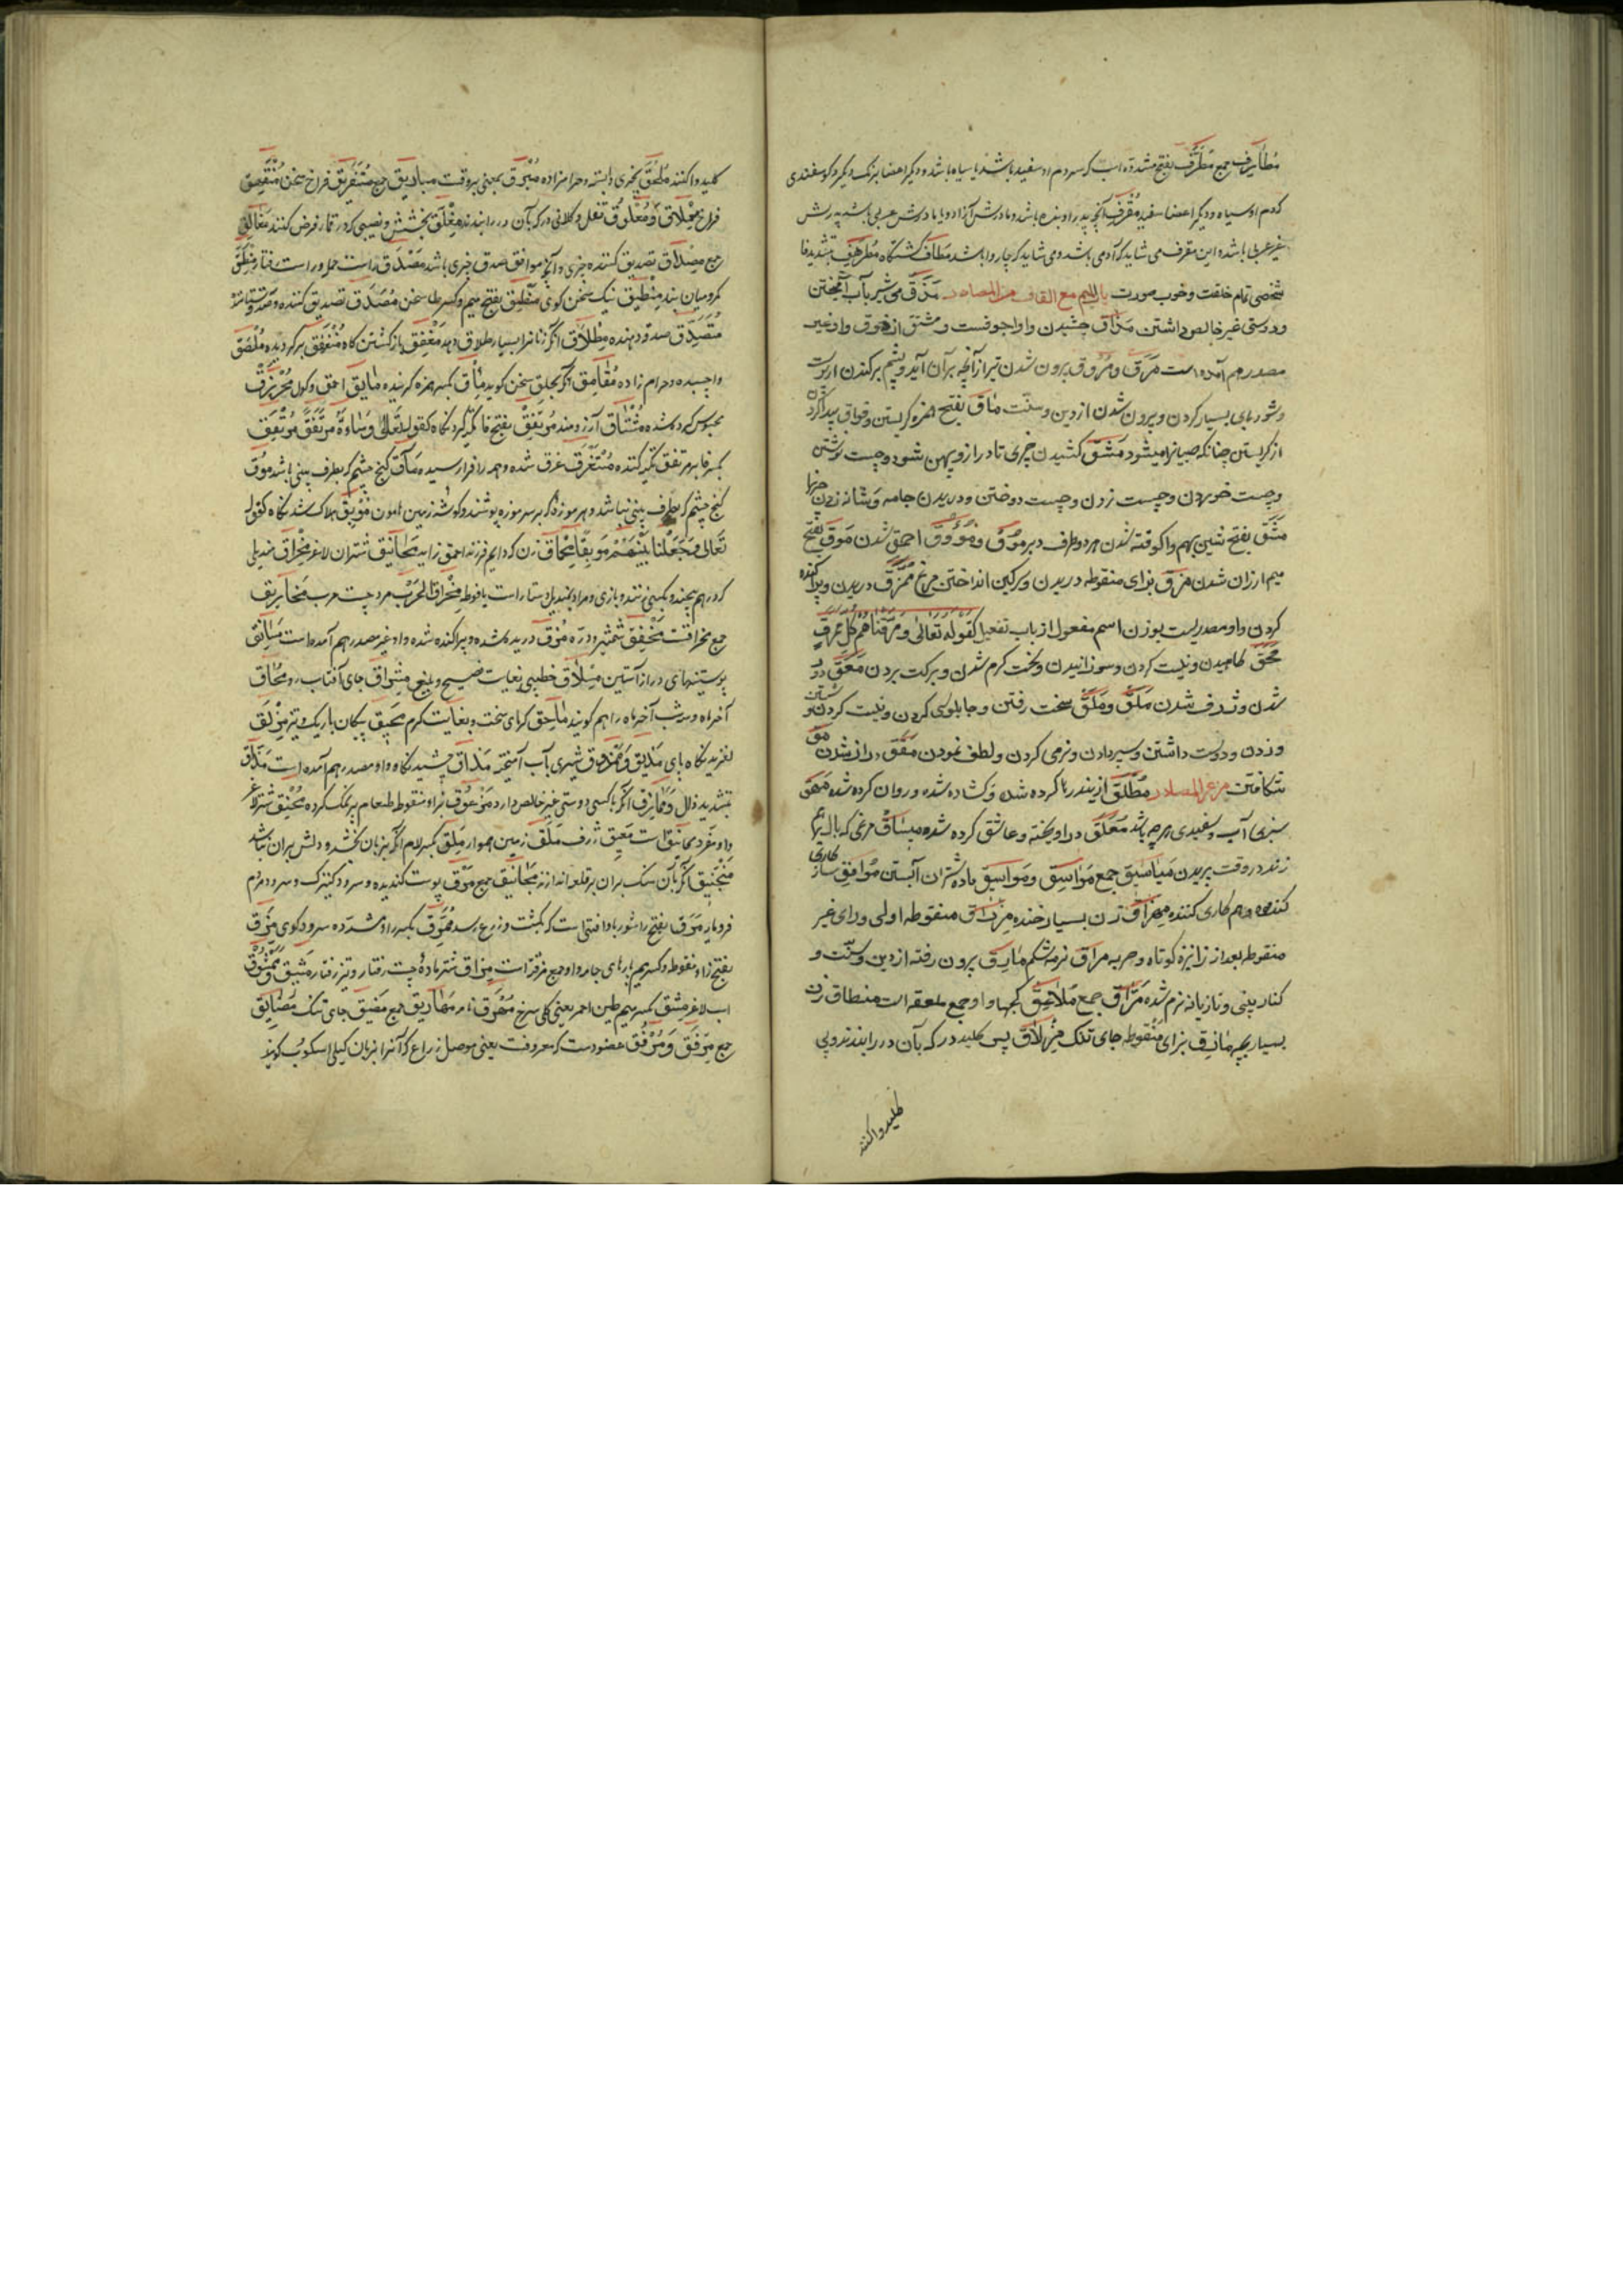 مُطَایِرف جمع مُطَرَّف بفتح مشدده است که سر و دم او سفید باشد یا سیاه باشد و دیگر اعضا برنگ دیگر و کوسفندی
که دم او سیاه و دیگر اعضا سفید مُقْرِف آنچه پدر او بنده باشد و مادرش آزاد و یا مادرش عربی باشد و پدرش
غیر عربی باشد و این مقرف می شاید که آدمی باشد و می شاید که چاروا باشد مَطَاف کشتگاه مُطَرْهَف بتشدید فا
شخصی تمام خلقت و خوب صورت باب المیم مع القاف من المصادر مَذْق می شیر بآب آمیختن
و دوستی غیر خالص داشتن مَذَاق چشیدن و او اجوفست و مشتق از ذوق و او غیر
مصدر هم آمده است مَرَق و مُرُوق بیرون شدن تیر از آنچه بر آن آید و پشم برکندن از پوست
و شوربای بسیار کردن و بیرون شدن از دین و سنّت مَاق بفتح همزه کریستن و فواق پیدا کردن
از کریستن چنانکه صبیانرا میشود مَشْق کشیدن چیزی تا دراز و پهن شود و چست نوشتن
و چست خوردن و چست زدن و چست دوختن و دریدن جامه و شانه زدن
مَشَق بفتح شین بهم واکوفته شدن هر دو طرف دبر مُوْق و مُؤُوق احمق شدن مَوْق بفتح
میم ارزان شدن مَزْق بزای منقوطه دریدن و سرکین انداختن مرغ مُمَزَّق دریدن و پراکنده
کردن و او مصدریست بوزن اسم مفعول از باب تفعیل کقوله تعالی وَمَزَّقْنَاهُمْ کُلَّ مُمَزَّقٍ
مَحْق کاهیدن و نیست کردن و سوزانیدن و سخت کرم شدن و برکت بردن مَعَق دور
شدن و ژرف شدن مَلَق و مَلْق سخت رفتن و چابلوسی کردن و نیست کردن شستن
و زدن و دوست داشتن و سیر دادن و نرمی کردن و لطف نمودن مَقَق دراز شدن مَق
شکافتن من غیر المصادر مُطْلَق از بند رها کرده شده و کشاده شده و روان کرده شده مَهَق
سبزی آب و سفیدی هر چه باشد مُعَلَّق در آویخته و عاشق کرده شده مِیسَاق مرغی که بال بر هم
زند در وقت پریدن مَیَاسِیق جمع مَوَاسِق و مَوَاسِیق ماده شتران آبستن مُوَافِق سازکاری
کننده و هم کاری کننده مِهْزَاق زن بسیار خنده مِزْرَاق منقوطه اولی و رای غیر
منقوطه بعد از زا نیزه کوتاه و حربه مَرَاق نرمه شکم مَارِق بیرون رفته از دین و سنّت و
کنار بینی و تازیانه نرم شده مَرَّاق جمع مَلَاعِق کجها و او جمع ملعقه است مِنْطَاق زن
بسیار بچه مَازِق بزای منقوطه جای تنک مِزْلَاق پس کلید در که بآن در را بندند و پی
کلید واکنند
کلید واکنند مُلْحَق بچیزی وابسته و حرامزاده مُبْرِق بمعنی بروقت مَبَارِیق جمع مُتَفَیْهِق فراخ سخن مُنْفَهِق
فراخ مِغْلَاق و مُغْلُوق قفل و کلانی در که بآن در را بندند مِغْلَق بخشش و نصیبی که در قمار فرض کنند مَغَالِق
جمع مِصْدَاق تصدیق کننده چیزی و آنچه موافق صدق چیزی باشد مَصْدَق راست حمله و راست رفتار مِنْطَق
کمر و میان بند مِنْطِیق نیک سخن کوی مَنْطِق بفتح میم و کسر طا سخن مُصَدِّق تصدیق کننده و صدقه ستاننده
مُتَصَدِّق صدقه دهنده مِطْلَاق آنکه زنانرا بسیار طلاق دهد مَغْفِق باز کشتن کاه مُنْعَفِق بر کردیده مُلْصَق
وا چسبیده و حرام زاده مُقَامِق آنکه بحلق سخن کوید مَئِق بکسر همزه کرینده مَائِق احمق و کول مُحْرَنْزِق
محبوس کرده شده مُشْتَاق آرزومند مُرْتَفَق بفتح فا تکیه کردنکاه کقوله تعالی وَسَاءَتْ مُرْتَفَقًا مُرْتَفِق
بکسر فا بر مرفق تکیه کننده مُسْتَغْرَق غرق شده و همه را فرا رسیده مَاق کنج چشم که بطرف بینی باشد مُوق
کنج چشم که بطرف بینی نباشد و هر موزه که بر سر موزه پوشند و کوشه زمین هامون مَوْبِق هلاک شدنکاه کقوله
تعالی وَجَعَلْنَا بَیْنَهُمْ مَوْبِقًا مِحْمَاق زن که دایم فرزند احمق زاید مَحَانِیق شتران لاغر مِخْرَاق مندیلی
که در هم پیچند و بکسی زنند و بازی و مراد بمندیل دستار است یا فوطه مِخْرَاق الحرب مرد چست حرب مَخَارِیق
جمع مخراقست مِخْفَق شمشیر و درّه مُمَزَّق دریده شده و پراکنده شده و او غیر مصدر هم آمده است مَسَاتِق
پوستینهای دراز آستین مِسْلَاق خطیبی بغایت فصیح و بلیغ مِشْرَاق جای آفتاب رو مُحَاق
آخر ماه و سه شب آخر ماه را هم کویند مَاحِق کرمای سخت و بغایت کرم مَحِیق پیکان باریک و تیز مَزْلَق
لغزیدنکاه پای مَذِیق و مَمْذُوق شیری بآب آمیخته مَذَاق چشیدنکاه و او مصدر هم آمده است مَذَّاق
بتشدید ذال و مُمَاذِق آنکه با کسی دوستی غیر خالص دارد مَزْعُوق بزای منقوطه طعام پر نمک کرده مُحْنِق شتر لاغر
و او مفرد محانیق است مَعِیق ژرف مَلَق زمین هموار مَلِق بکسر لام آنکه بزبان بخشد و دلش بر آن نباشد
مَنْجَنِیق آنکه بآن سنک بر آن بر قلعه اندازند مَجَانِیق جمع مَرْق پوست کندیده و سرود کنیزک و سرود مردم
فرومایه مَرَق بفتح را شوربا و آفتی است که بکشت و زرع رسد مُمَرِّق بکسر را و مشدده سرود کوی مِزَق
بفتح زا منقوطه و کسر میم پارهای جامه و او جمع مزقه است مِزَاق شتر ماده چست رفتار و تیز رفتار مَشِیق و مَمْشُوق
اسب لاغر مِشْق بکسر میم طین احمر یعنی کل سرخ مُهْرَق نامه مَهَارِیق جمع مَضِیق جای تنک مَضَایِق
جمع مِرْفَق و مَرْفِق عضو دست که معروفست یعنی موصل ذراع که آنرا بزبان کیلی اسکوب کویند